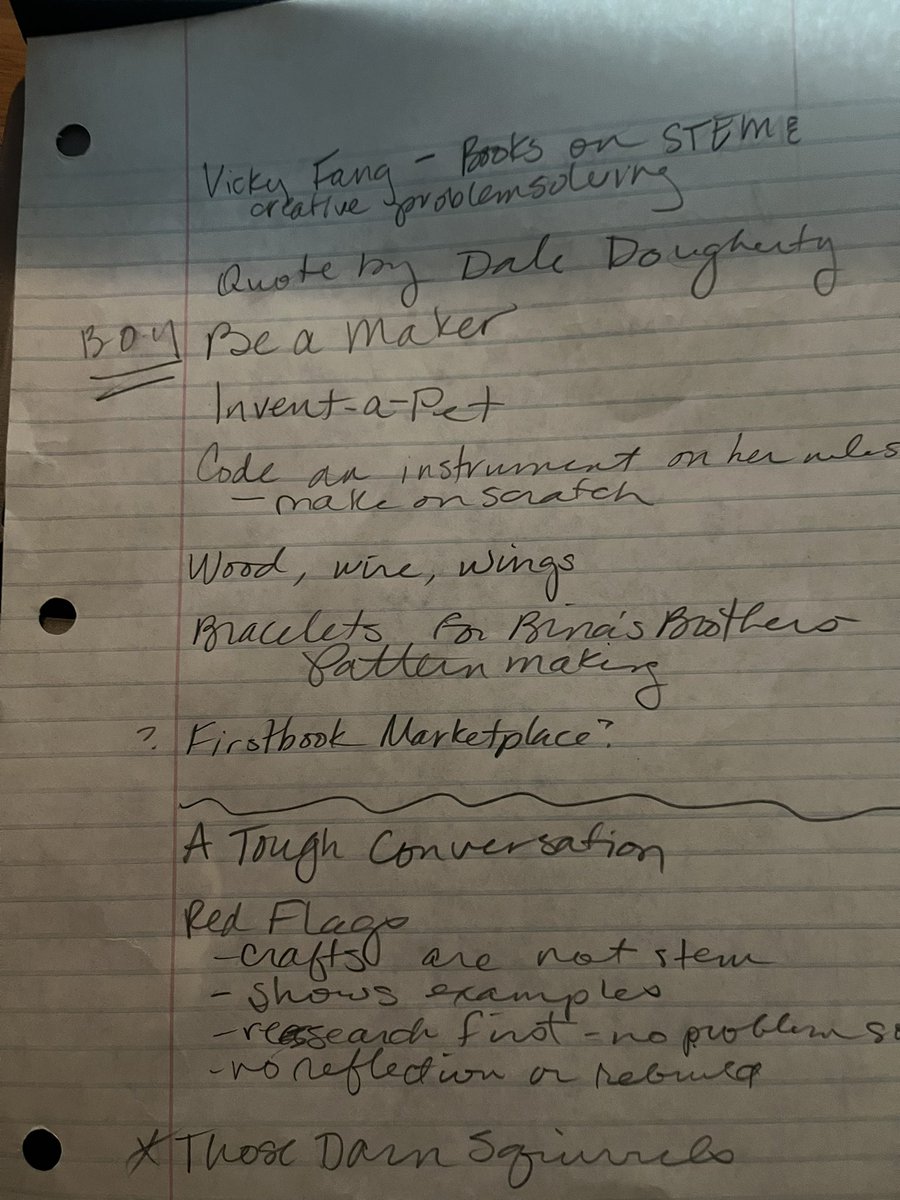 Vicky Fang - Books on STEM &
creative problemsolving
Quote by Dale Dougherty
BOY Be a Maker
Invent-a-Pet
Code an instrument on her
- make on scratch
Wood, wire, wings
Bracelets for Bina's Brothers
Pattern making
? Firstbook Marketplace?
A Tough Conversation
Red Flags
- crafts are not stem
- shows examples
- research first - no problem
- no reflection or rebuild
* Those Darn Squirrels